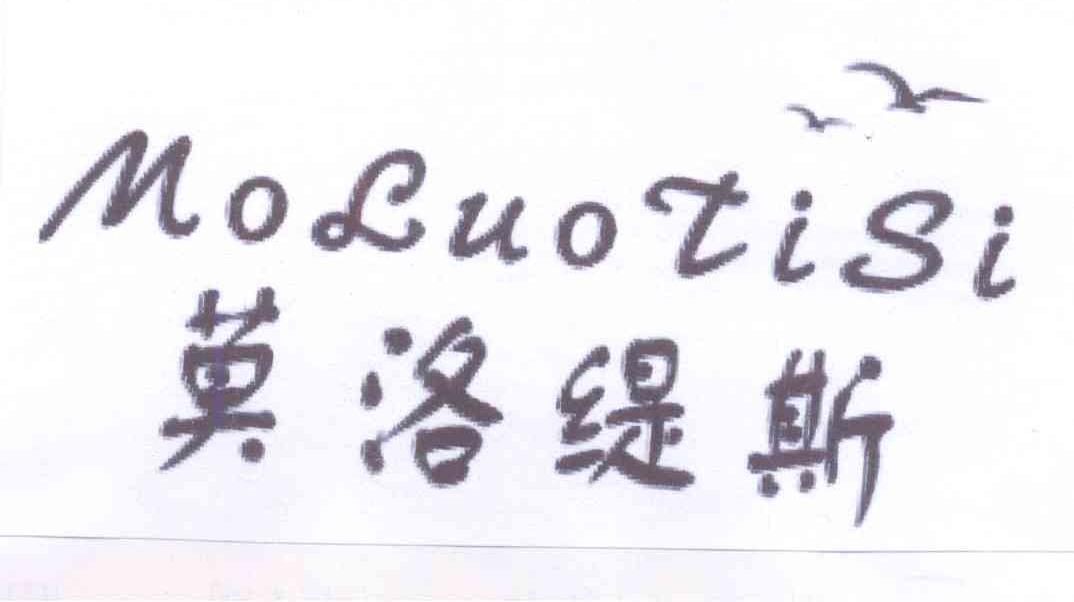 MoLuoTiSi
莫洛缇斯